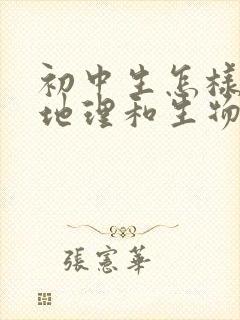 初中生怎樣
地理和生物
張憲華